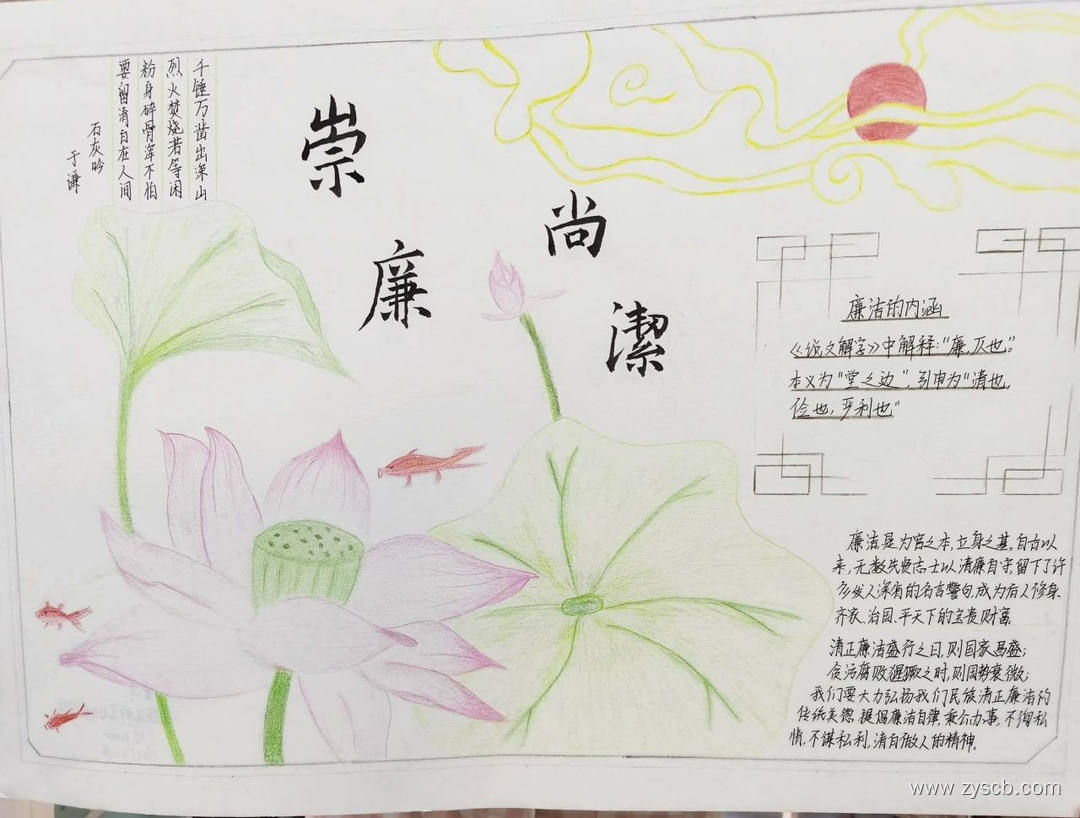 千锤万凿出深山
烈火焚烧若等闲
粉身碎骨浑不怕
要留清白在人间
石灰吟
于谦
崇
尚
廉
潔
廉洁的内涵
《说文解字》中解释:"廉,仄也。"
本义为"堂之边",引申为"清也,
俭也,严利也"
廉洁是为官之本,立身之基。自古以
来,无数先贤志士以清廉自守,留下了许
多发人深省的名言警句,成为后人修身
齐家、治国、平天下的宝贵财富。
清正廉洁盛行之日,则国家昌盛;
贪污腐败猖獗之时,则国势衰微;
我们要大力弘扬我们民族清正廉洁的
传统美德,提倡廉洁自律,秉公办事,不徇私
情,不谋私利,清白做人的精神。
www.zyscb.com